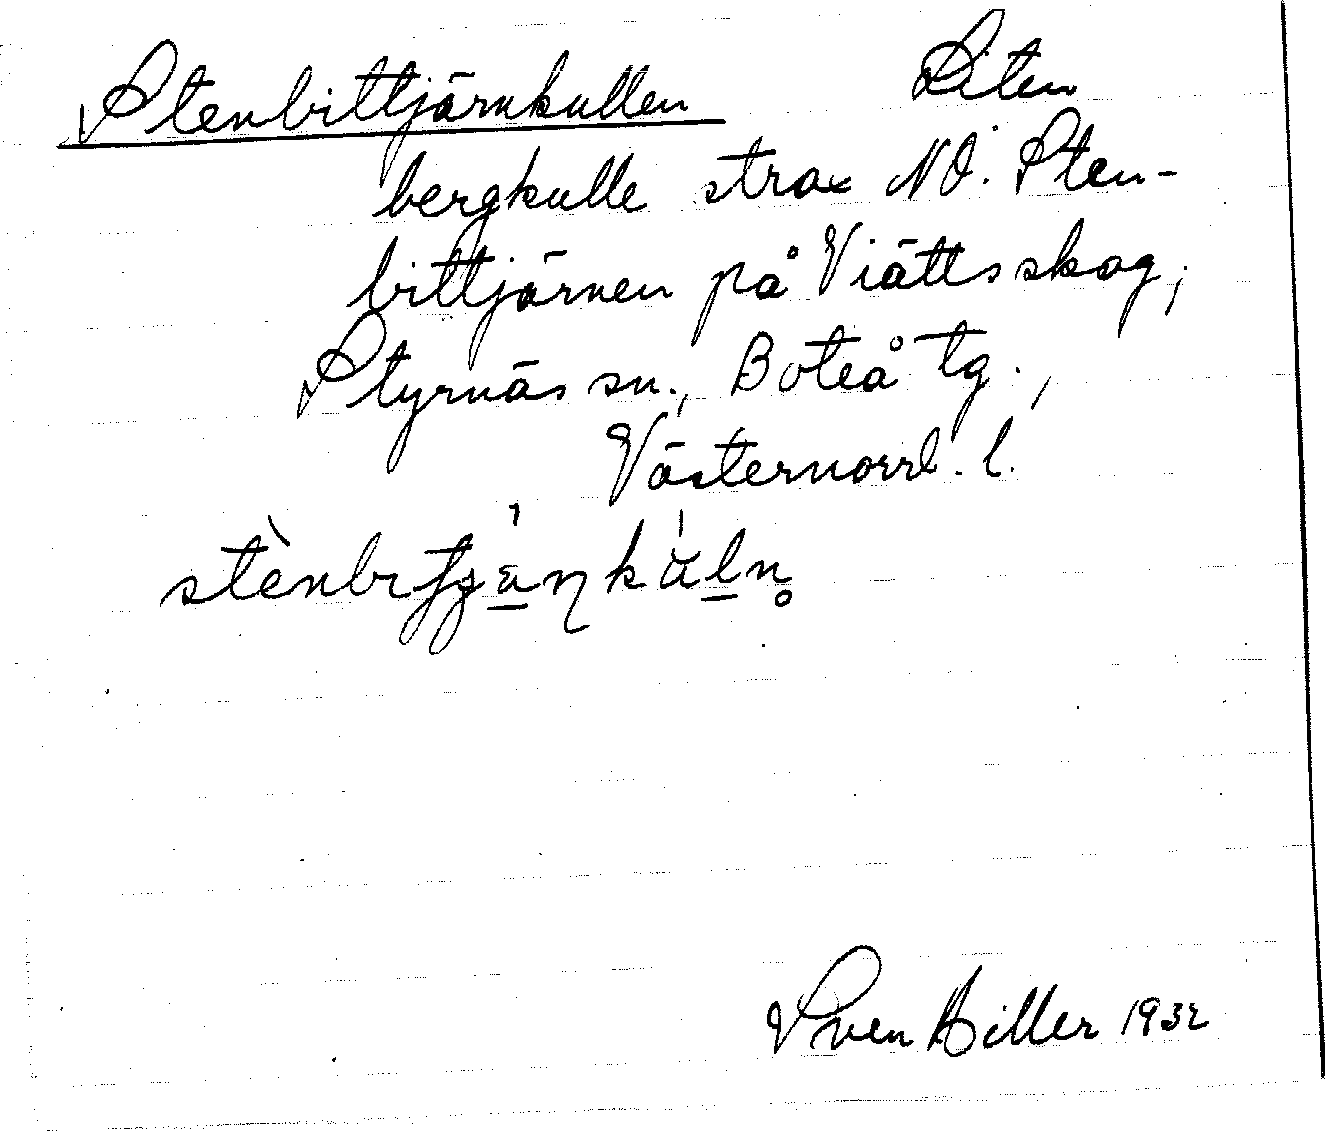 Stenbittjärnkullen Liten
bergkulle strax NÖ. Sten-
bittjärnen på Viätts skog,
Styrnäs sn., Boteå tg.,
Västernorrl. l.
Sven Hiller 1932